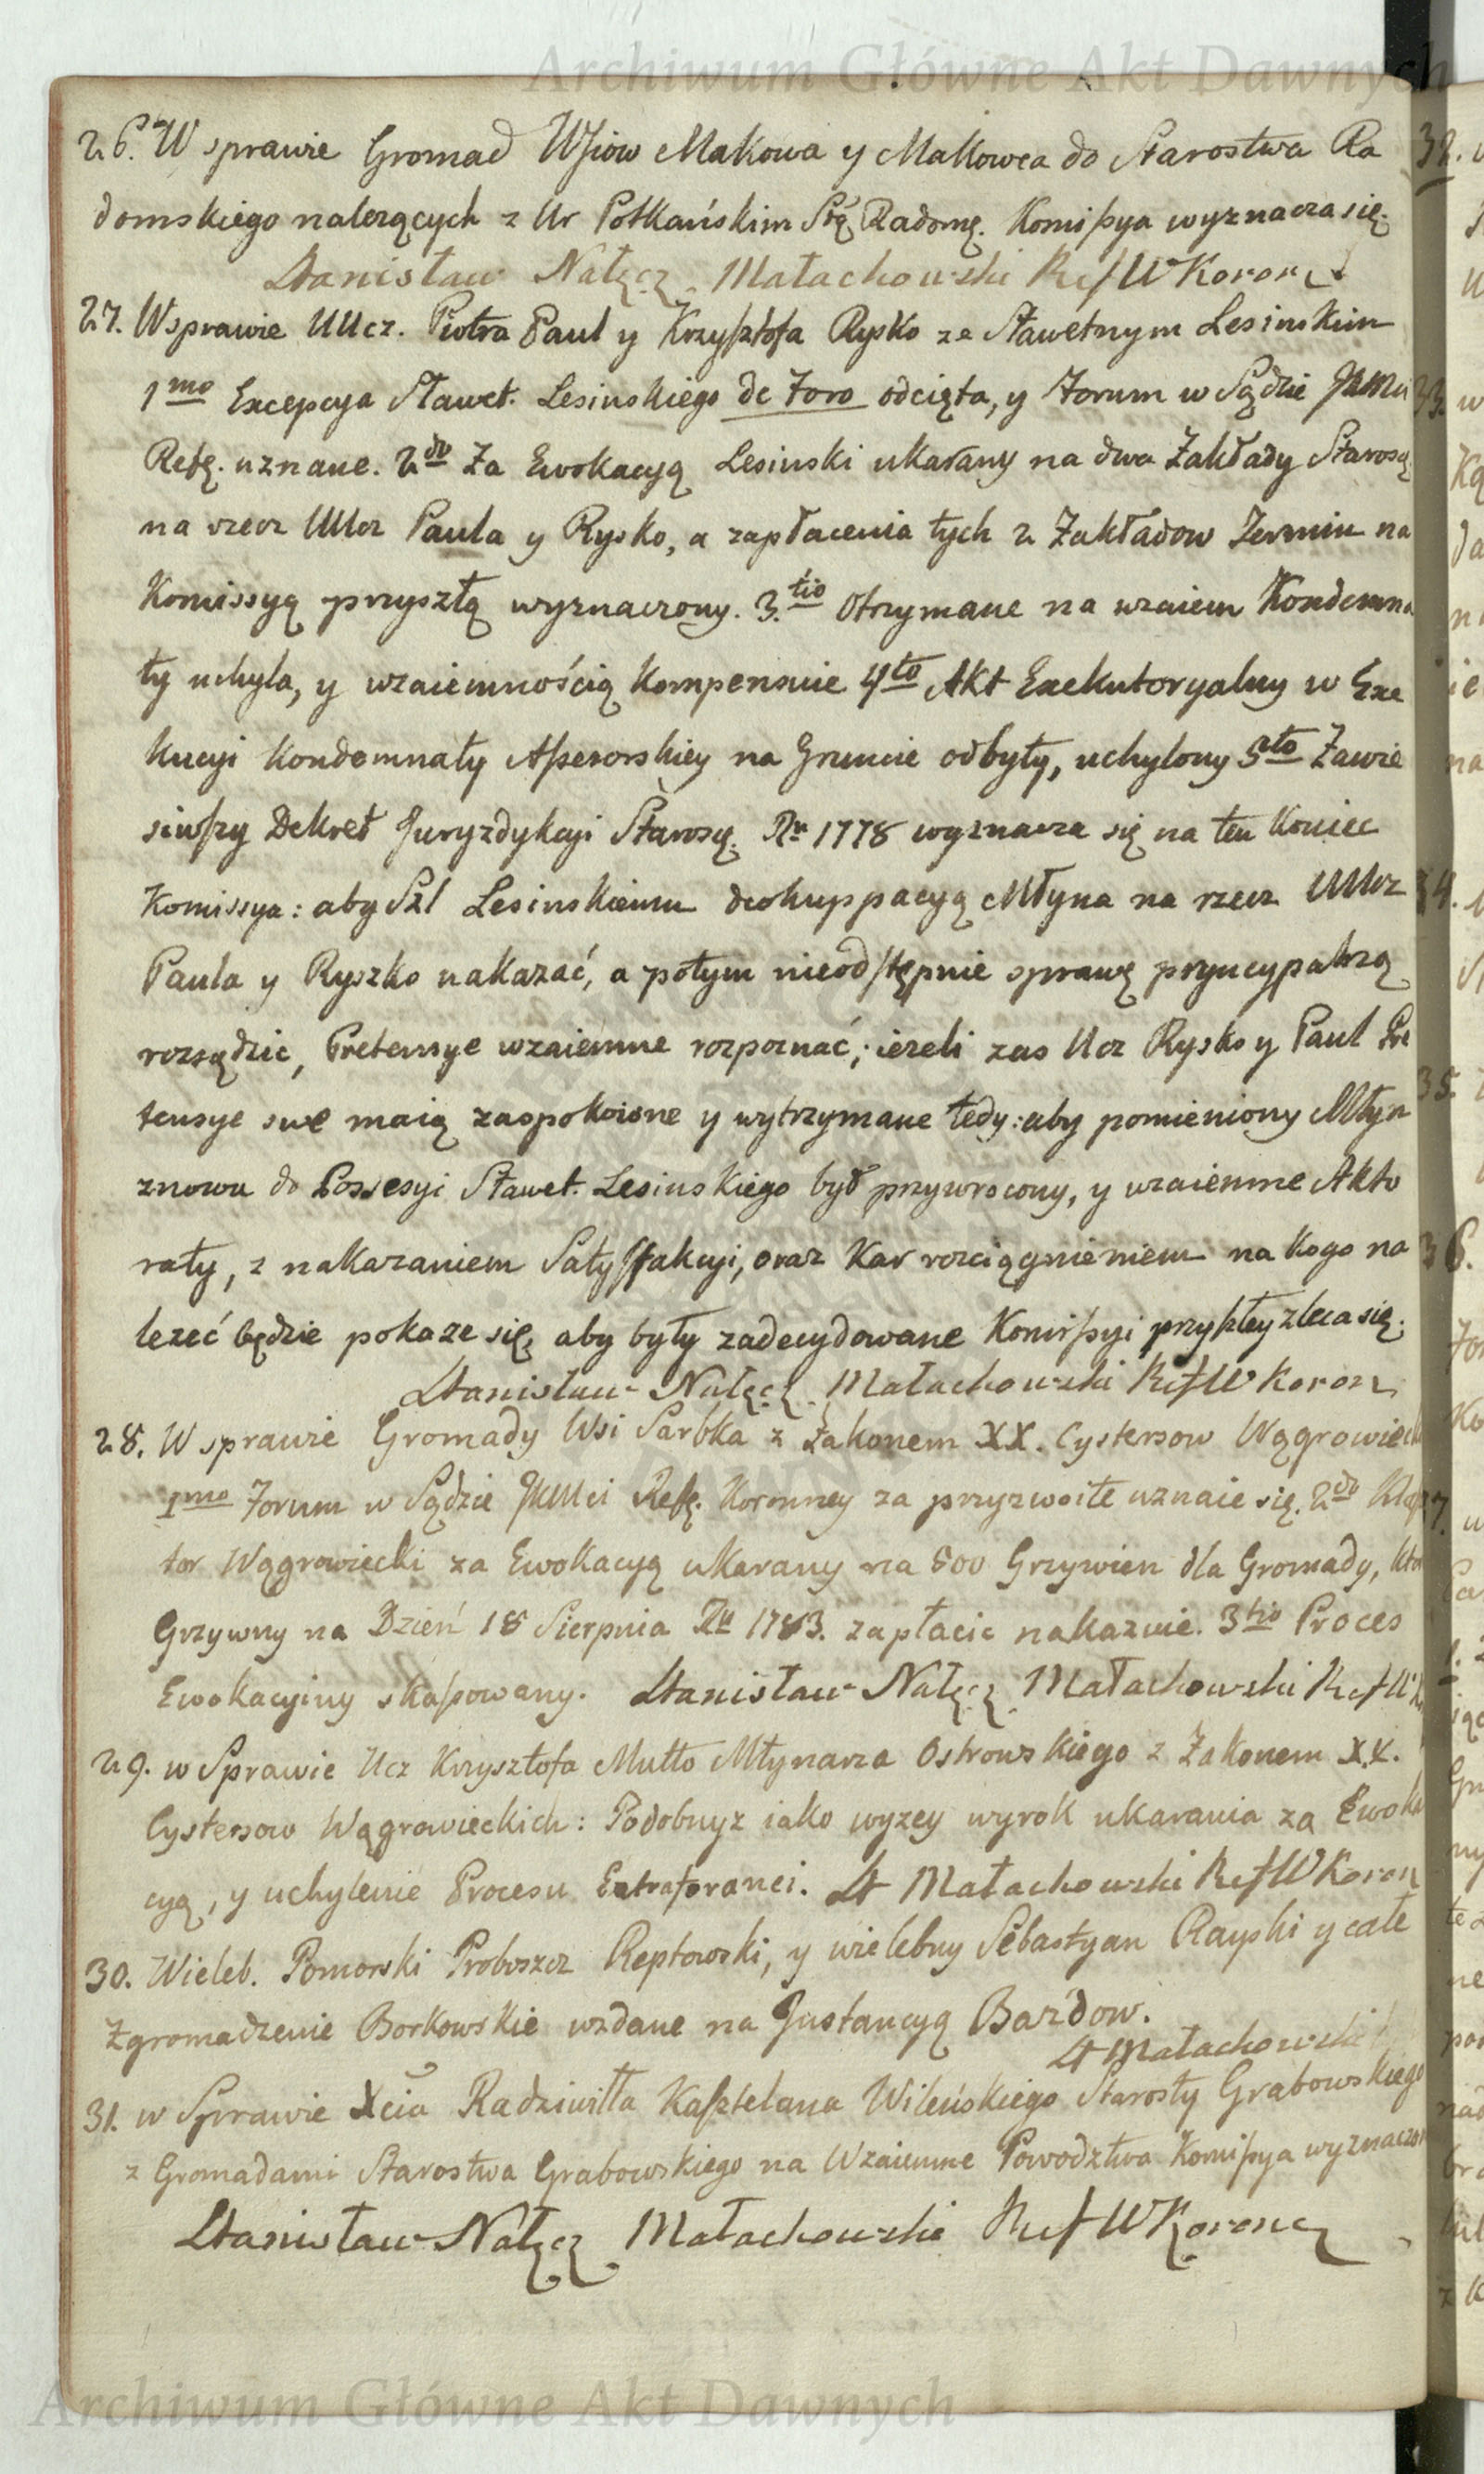 Archiwum Główne Akt Dawnych
26. W sprawie Gromad Wsiow Makowa y Makowca do Starostwa Ra
domskiego nalezących z Ur Potkańskim Stą Radomą. Komissya wyznacza się.
Stanisław Nałęcz Małachowski Ref W Koron
27. W sprawie UUcz. Piotra Paul y Krzysztofa Rysko ze Sławetnym Lesinskim
1mo Excepcya Sławet. Lesinskiego de Foro odcięta, y Forum w Sądzie JKMci
Refę. uznane. 2do Za Ewokacyą Lesinski ukarany na dwa Zakłady Starosą
na rzecz UUcz Paula y Rysko, a zapłacenia tych 2 Zakładow Termin na
Komissyą przyszłą wyznaczony. 3.tio Otrzymane na wzaiem Kondemna
ty uchyla, y wzaiemnością kompensuie 4to Akt Exekutoryalny w Exe
kucyi Kondemnaty Assesorskiey na Gruncie odbyty, uchylony 5to Zawie
siwszy Dekret Juryzdykcyi Starosą. Ru 1778 wyznacza się na ten Koniec
Komissya: aby Szl Lesinskiemu deokuppacyą Młyna na rzecz UUcz
Paula y Ryszko nakazać, a potym nieodstępnie sprawę pryncypalną
rozsądzic, Pretensye wzaiemne rozpoznać; iezeli zas Ucz Rysko y Paul Pre
tensye swe maią zaspokoione y wytrzymane tedy: aby pomieniony Młyn
znowu do Possesyi Sławet. Lesinskiego był przywrocony, y wzaiemne Akto
raty, z nakazaniem Satysfakcyi, oraz Kar rozciągnieniem na kogo na
lezeć będzie pokaze się, aby były zadecydowane Komissyi przyszłey zleca się.
Stanisław Nałęcz Małachowski Ref W Koron
28. W sprawie Gromady Wsi Sarbka z Zakonem XX. Cystersow Wągrowieck
1mo Forum w Sądzie JKMci Refę. Koronney za przyzwoite uznaie się. 2do Klasz
tor Wągrowiecki za Ewokacyą ukarany na 500 Grzywien dla Gromady, kto
Grzywny na Dzień 18 Sierpnia Ru 1783. zapłacic nakazuie. 3tio Proces
Ewokacyiny skassowany. Stanisław Nałęcz Małachowski Ref W K
29. w Sprawie Ucz Krzysztofa Mutto Młynarza Ostrowskiego z Zakonem XX.
Cystersow Wągrowieckich: Podobnyz iako wyzey wyrok ukarania za Ewoka
cyą, y uchylenie Procesu Extraforanei. St Małachowski Ref W Koron
30. Wieleb. Pomorski Proboszcz Reptowski, y wielebny Sebastyan Rayski y całe
Zgromadzenie Borkowskie wzdane na Jnstancyą Bazdow.
St Małachowski
31. w Sprawie Xcia Radziwiłła Kasztelana Wileńskiego Starosty Grabowskiego
z Gromadami Starostwa Grabowskiego na Wzaiemne Powodztwa Komissya wyznaczon
Stanisław Nałęcz Małachowski Ref W Koronę
Archiwum Główne Akt Dawnych